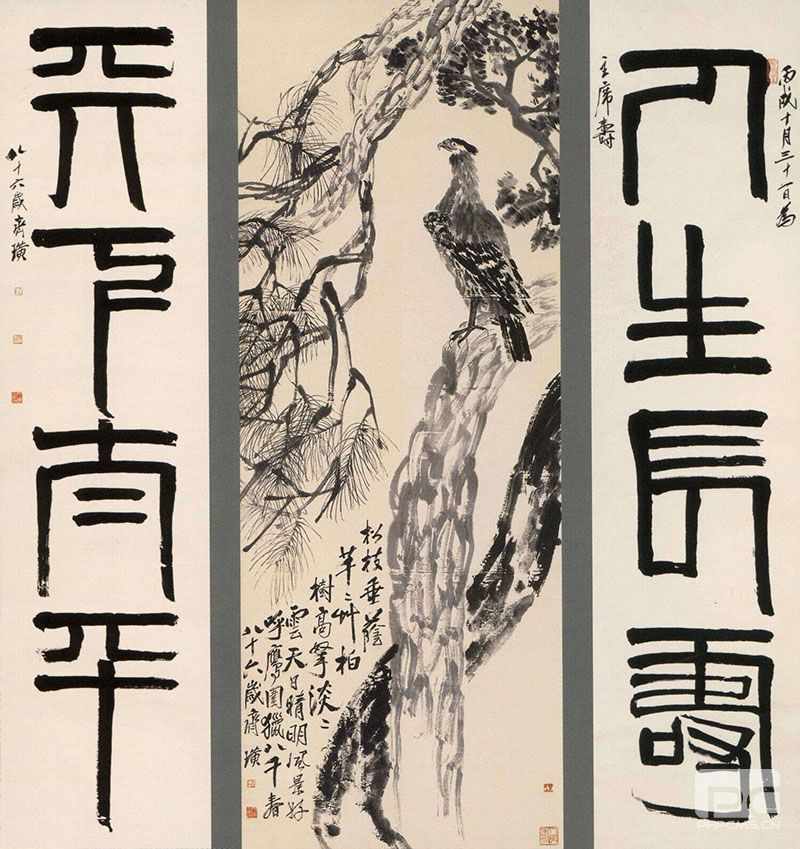 丙戌十月三十一日為
主席壽
人生長壽
松枝垂蔭
芊〻艸柏
樹高擎淡〻
雲天日晴明風景好
呼鷹圍獵八千春
八十六歲齊璜
天下太平
八十六歲齊璜
PHPCMS.CN